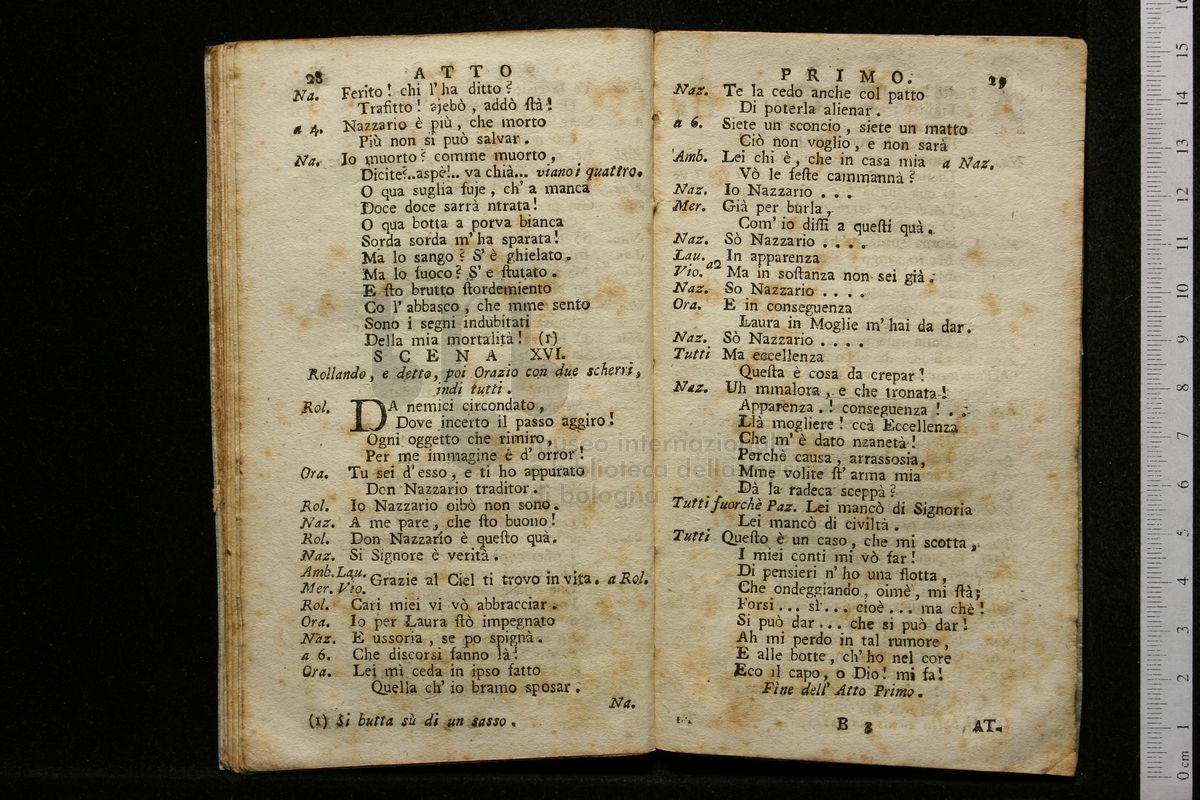 28 ATTO
Na. Ferito! chi l'ha ditto?
Trafitto! ajebò, addò ſtà!
a 4. Nazzario è più, che morto
Più non si può salvar.
Na. Io muorto? comme muorto,
Dicite?..aspè!.. va chià... viano i quattro.
O qua suglia fuje, ch'a manca
Doce doce sarrà ntrata!
O qua botta a porva bianca
Sorda sorda m'ha sparata!
Ma lo sango? S'è ghielato.
Ma lo fuoco? S'e ſtutato.
E ſto brutto ſtordemiento
Co l'abbasco, che mme sento
Sono i segni indubitati
Della mia mortalità! (1)
SCENA XVI.
Rollando, e detto, poi Orazio con due scherri,
indi tutti.
Rol. DA nemici circondato,
Dove incerto il passo aggiro!
Ogni oggetto che rimiro,
Per me immagine è d'orror!
Ora. Tu sei d'esso, e ti ho appurato
Don Nazzario traditor.
Rol. Io Nazzario oibò non sono.
Naz. A me pare, che ſto buono!
Rol. Don Nazzario è queſto quà.
Naz. Si Signore è verità.
Amb. Lau.
Mer. Vio. Grazie al Ciel ti trovo in vita. a Rol.
Rol. Cari miei vi vò abbracciar.
Ora. Io per Laura ſtò impegnato
Naz. E ussoria, se po spignà.
a 6. Che discorsi fanno là!
Ora. Lei mi ceda in ipso fatto
Quella ch'io bramo sposar.
Na.
(1) Si butta sù di un sasso.
PRIMO. 29
Naz. Te la cedo anche col patto
Di poterla alienar.
a 6. Siete un sconcio, siete un matto
Ciò non voglio, e non sarà
Amb. Lei chi è, che in casa mia a Naz.
Vò le feſte cammannà?
Naz. Io Nazzario ...
Mer. Già per burla,
Com'io diſſi a queſti quà.
Naz. Sò Nazzario ....
Lau. In apparenza
Vio. a2 Ma in soſtanza non sei già.
Naz. So Nazzario ....
Ora. E in conseguenza
Laura in Moglie m'hai da dar.
Naz. Sò Nazzario ....
Tutti Ma eccellenza
Queſta è cosa da crepar!
Naz. Uh mmalora, e che tronata!
Apparenza.! conseguenza!..
Llà mogliere! ccà Eccellenza
Che m'è dato nzanetà!
Perchè causa, arrassosia,
Mme volite ſt'arma mia
Dà la radeca sceppà?
Tutti fuorchè Paz. Lei mancò di Signoria
Lei mancò di civiltà.
Tutti Queſto è un caso, che mi scotta,
I miei conti mi vò far!
Di pensieri n'ho una flotta,
Che ondeggiando, oimè, mi ſtà;
Forsi... sì... cioè... ma chè!
Si può dar... che si può dar!
Ah mi perdo in tal rumore,
E alle botte, ch'ho nel core
Eco il capo, o Dio! mi fa!
Fine dell'Atto Primo.
B 3 AT-
museo internazionale
biblioteca della
di bologna